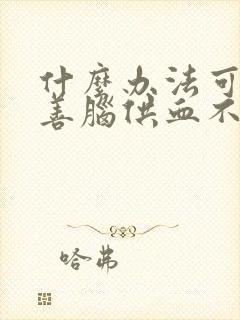 什麽办法可
善腦供血不
哈弗